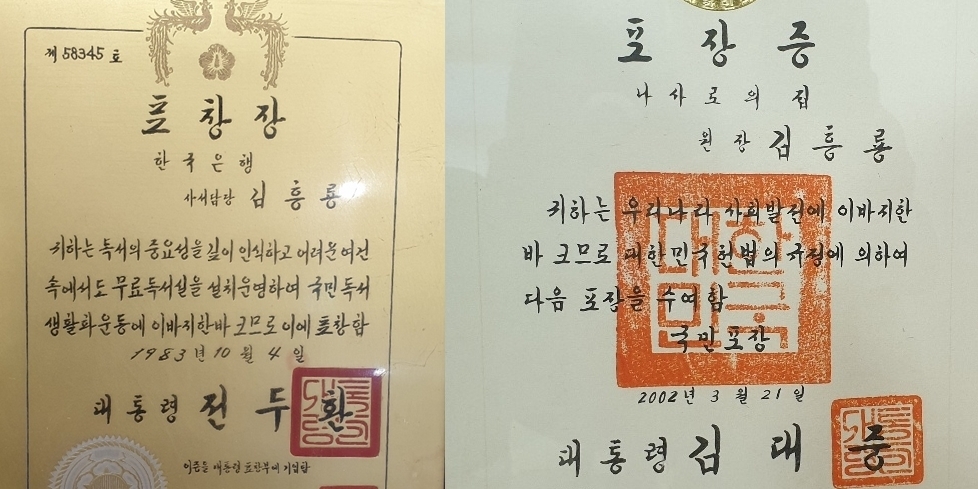 제 58345 호
표 창 장
한 국 은 행
사서담당 김 흥 룡
귀하는 독서의 중요성을 깊이 인식하고 어려운 여건
속에서도 무료독서실을 설치운영하여 국민 독서
생활화운동에 이바지한바 크므로 이에 표창함
1983 년 10 월 4 일
대 통 령 전 두 환
이증을 대통령 표창부에 기입함
포 장 증
나 사 로 의 집
원 장 김 흥 룡
귀하는 우리나라 사회발전에 이바지한
바 크므로 대한민국헌법의 규정에 의하여
다음 포장을 수여함
국민포장
대한민국
2002 년 3 월 21 일
대 통 령 김 대 중